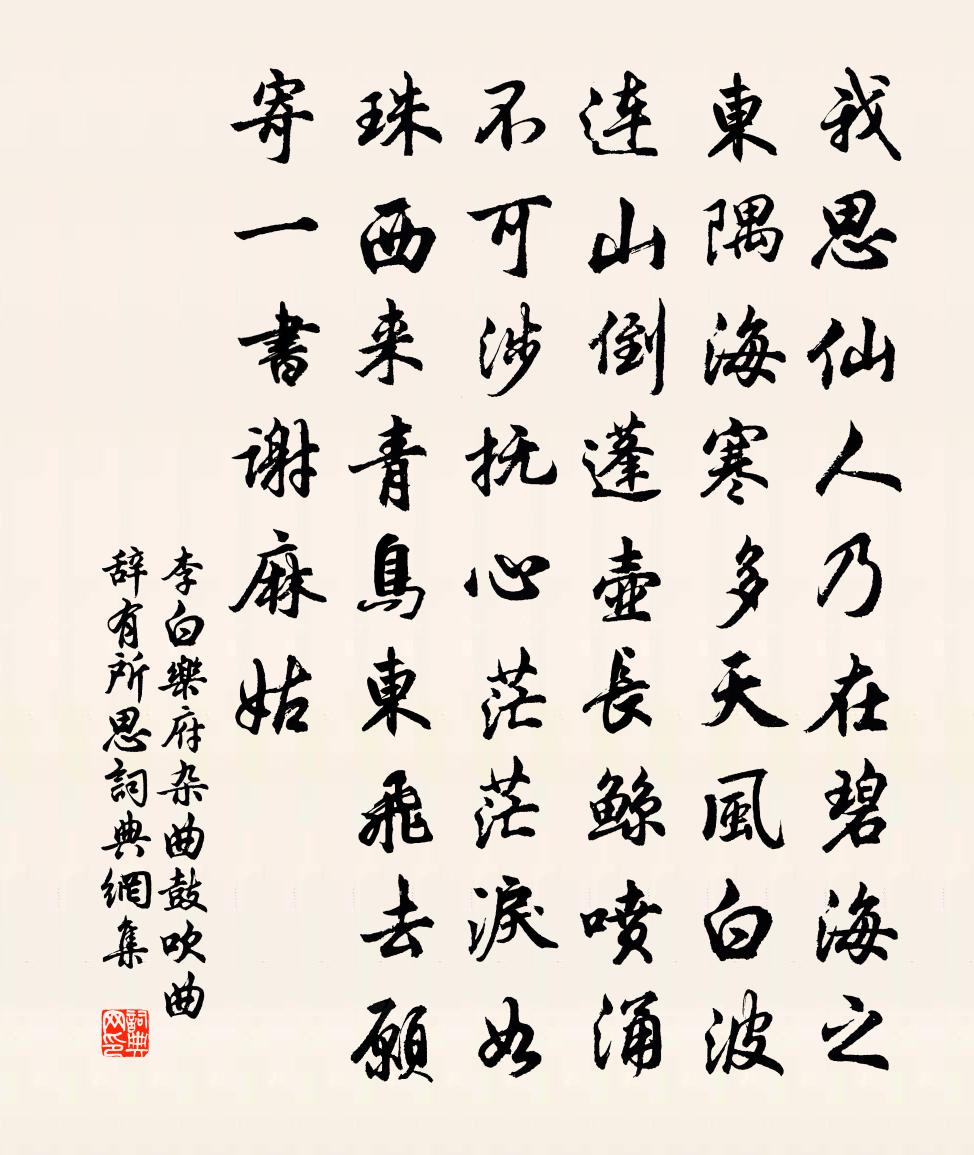 我思仙人乃在碧海之
東隅海寒多天風白波
連山倒蓬壺長鲸喷涌
不可涉抚心茫茫淚如
珠西来青鳥東飛去願
寄一書谢麻姑
李白樂府杂曲鼓吹曲
辞有所思詞典網集
詞典网印